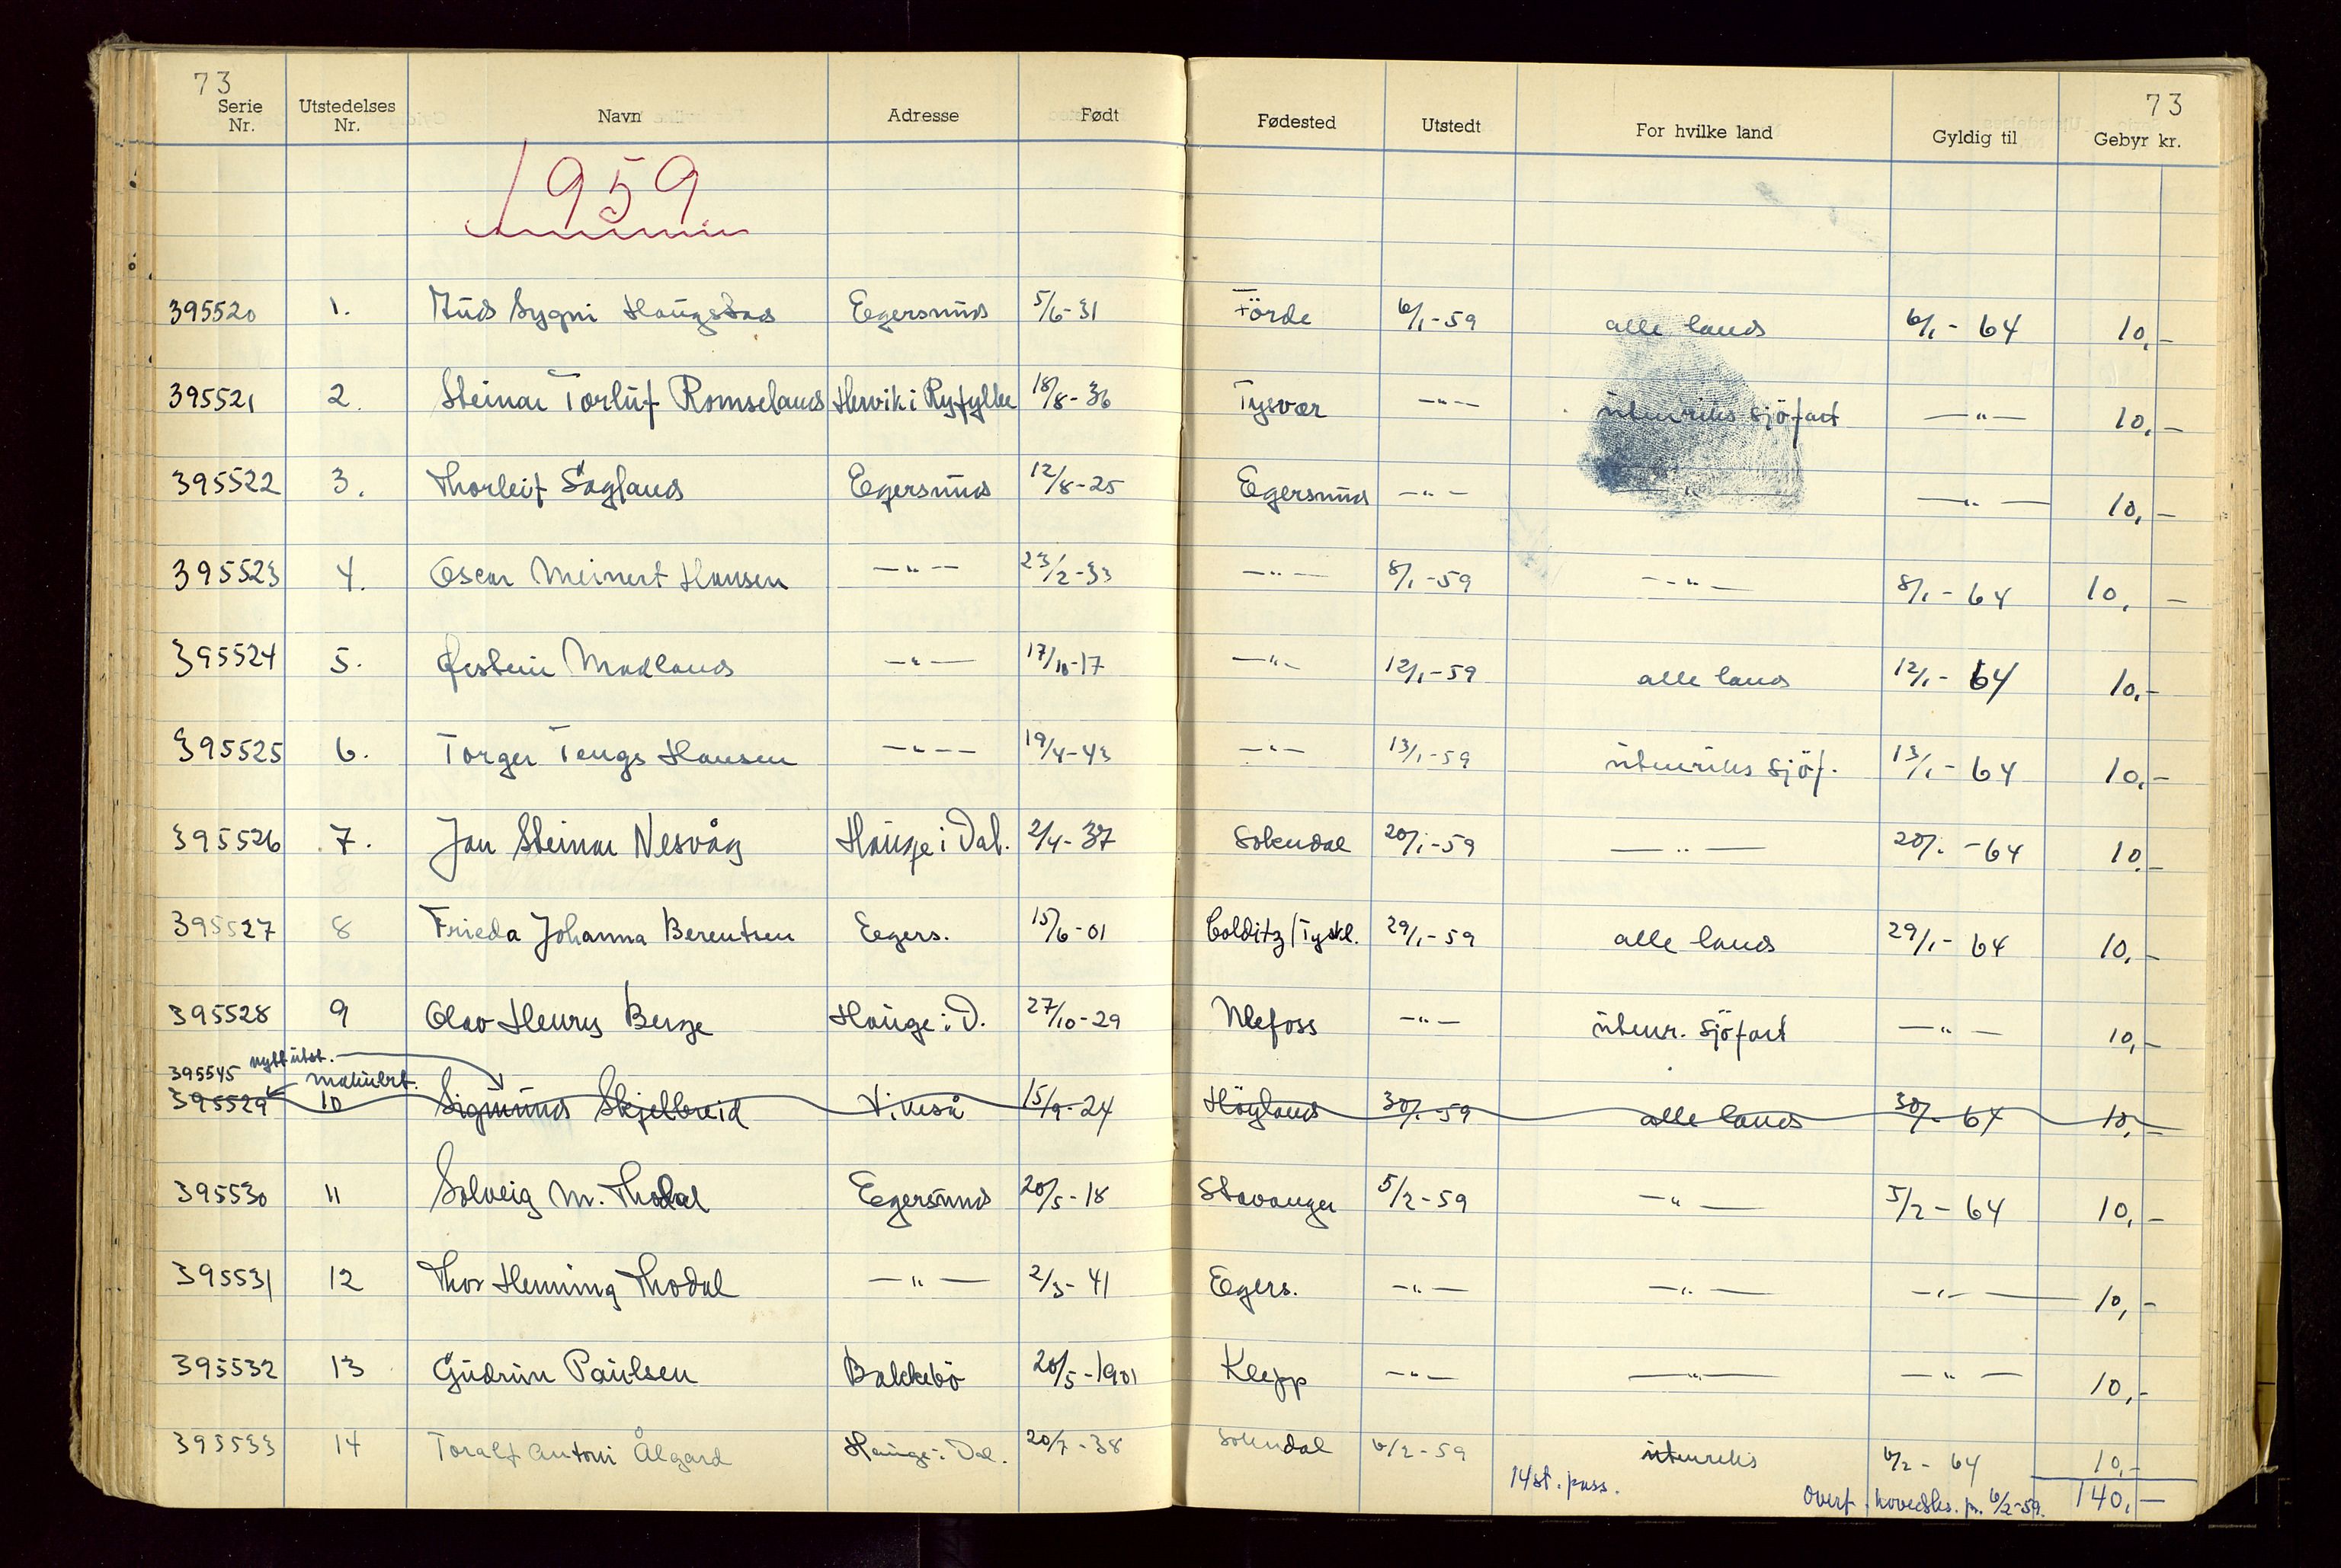 73 73
Serie Nr. Utstedelses Nr. Navn Adresse Født Fødested Utstedt For hvilke land Gyldig til Gebyr kr.
1959
395520 1. Haugstad Egersund 5/6-31 Förde 6/1-59 alle land 6/1-64 10,-
395521 2. Steinar Torluf Romseland Hervik i Ryfylke 18/8-36 Tysvær -"- utenriks sjöfart -"- 10,-
395522 3. Thorleif Søyland Egersund 12/8-25 Egersund -"- -"- -"- 10,-
395523 4. Oscar Meinert Hansen -"- 23/2-33 -"- 8/1-59 -"- 8/1-64 10,-
395524 5. Øistein Madland -"- 17/10-17 -"- 12/1-59 alle land 12/1-64 10,-
395525 6. Torger Tengs Hansen -"- 19/4-43 -"- 13/1-59 utenriks sjöf. 13/1-64 10,-
395526 7. Jan Steinar Nesvåg Hauge i Dal. 2/4-37 Sokndal 20/1-59 -"- 20/1-64 10,-
395527 8 Frieda Johanna Berentsen Egers. 15/6-01 Colditz/Tyskl. 29/1-59 alle land 29/1-64 10,-
395528 9 Olav Henry Berge Hauge i D. 27/10-29 Ulefoss -"- utenr. sjöfart -"- 10,-
395545 nytt utst.
makulert.
395529 10 Sigmund Skjelbreid Vikeså 15/9-24 Höyland 30/1-59 alle land 30/1-64 10,-
395530 11 Solveig M. Thodal Egersund 20/5-18 Stavanger 5/2-59 -"- 5/2-64 10,-
395531 12 Thor Henning Thodal -"- 2/3-41 Egers. -"- -"- -"- 10,-
395532 13 Gudrun Paulsen Bakkebö 20/5-1901 Klepp -"- -"- -"- 10,-
395533 14 Toralf Antoni Ålgård Hauge i Dal. 20/7-38 Sokndal 6/2-59 utenriks 6/2-64 10,-
14 st. pass. Overf. hovedbs. pr. 6/2-59. 140,-